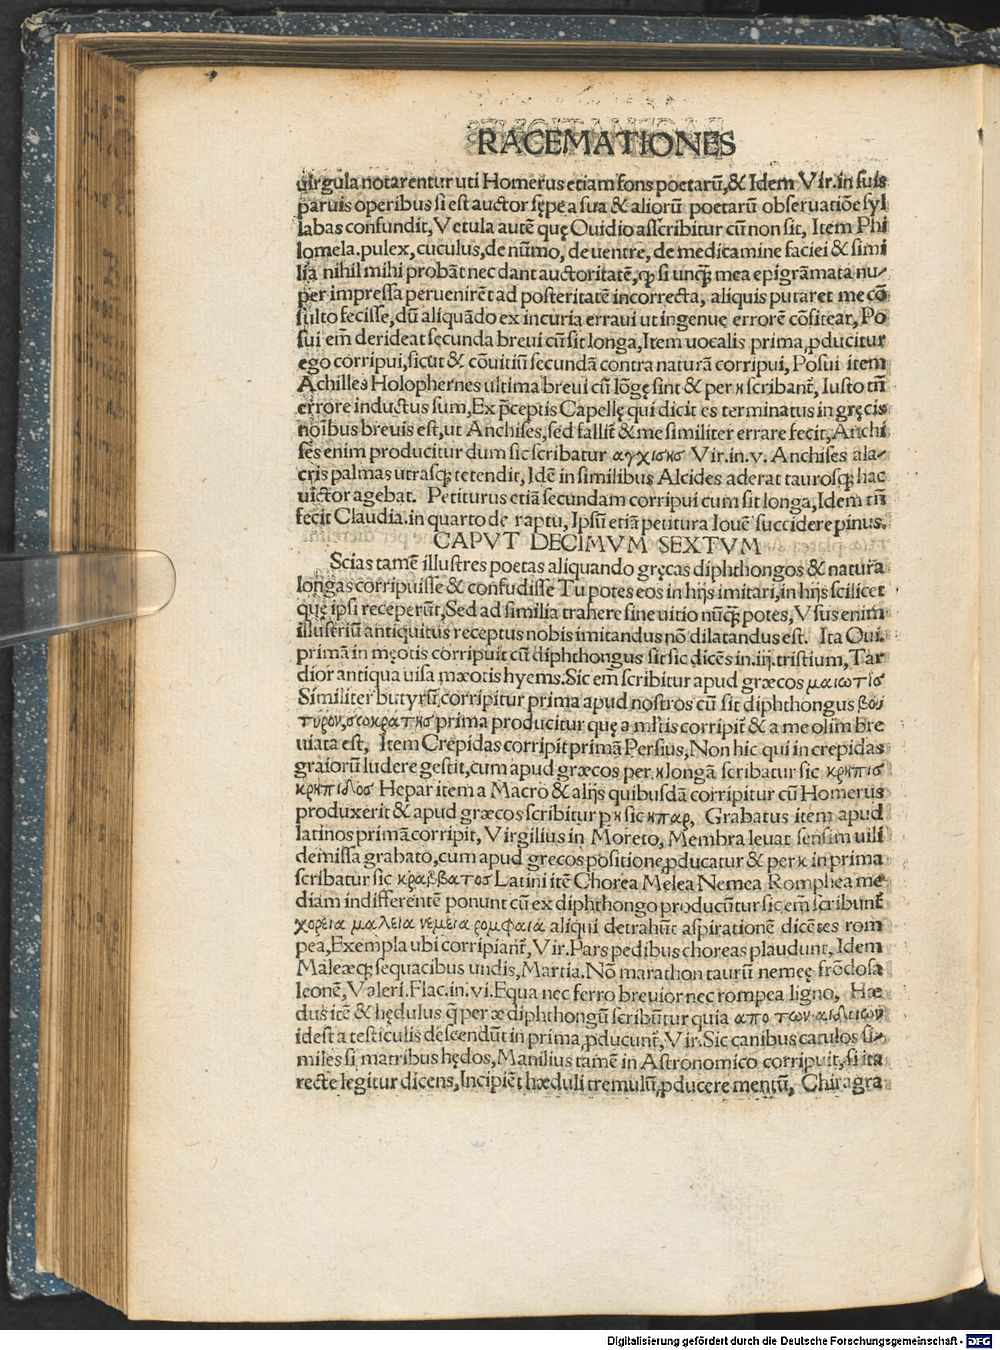 RACEMATIONES
uirgula notarentur uti Homerus etiam fons poetarū, & Idem Vir. in suis
paruis operibus si est auctor sępe a sua & aliorū poetarū obseruatiōe syl
labas confundit, Vetula autē quę Ouidio asscribitur cū non sit, Item Phi
lomela. pulex, cuculus, de nūmo, de uentre, de medicamine faciei & simi
lia nihil mihi probāt nec dant auctoritatē, ꝙ si unqꝫ mea epigrāmata nu-
per impressa peruenirēt ad posteritatē incorrecta, aliquis putaret me cō
sulto fecisse, dū aliquādo ex incuria erraui ut ingenue errorē cōfitear, Po
sui em̄ derideat sęcunda breui cū sit longa, Item uocalis prima ꝓducitur
ego corripui, sicut & cōuitiū secundā contra naturā corripui, Posui item
Achilles Holophernes ultima breui cū lōgę sint & per н scribant̄, Iusto tn̄
errore inductus sum, Ex p̄ceptis Capellę qui dicit es terminatus in gręcis
noībus breuis est, ut Anchises, sed fallit̄ & me similiter errare fecit, Anchi
ses enim producitur dum sic scribatur αγχισнσ Vir. in. v. Anchises ala-
cris palmas utrasqꝫ tetendit, Idē in similibus Alcides aderat taurosqꝫ hac
uictor agebat. Petiturus etiā secundam corripui cum sit longa, Idem tn̄
fecit Claudia. in quarto de raptu, Ipsū etiā petitura Iouē succidere pinus.
CAPVT DECIMVM SEXTVM
Scias tamē illustres poetas aliquando gręcas diphthongos & natura
longas corripuisse & confudisse Tu potes eos in hijs imitari, in hijs scilicet
quę ipsi receperūt, Sed ad similia trahere sine uitio nūqꝫ potes, Vsus enim
illustriū antiquitus receptus nobis imitandus nō dilatandus est. Ita Oui.
primā in męotis corripuit cū diphthongus sit sic dicēs in. iij. tristium, Tar
dior antiqua uisa mæotis hyems. Sic em̄ scribitur apud græcos μαιωτισ
Similiter butyrū, corripitur prima apud nostros cū sit diphthongus βου
τυρον, σωκρατнσ prima producitur quę a mltis corripit̄ & a me olim bre
uiata est, Item Crepidas corripit primā Persius, Non hic qui in crepidas
graiorū ludere gestit, cum apud græcos per н longā scribatur sic κρнπισ
κρнπιδοσ Hepar item a Macro & alijs quibusdā corripitur cū Homerus
produxerit & apud græcos scribitur p н sic нπαρ, Grabatus item apud
latinos primā corripit, Virgilius in Moreto, Membra leuat sensim uili
demissa grabato, cum apud grecos positione ꝓducatur & per κ in prima
scribatur sic κραββατοσ Latini itē Chorea Melea Nemea Romphea me
diam indifferentē ponunt cū ex diphthongo producūtur sic em̄ scribunt̄
χορεια μαλεια νεμεια ρομφαιά aliqui detrahūt aspirationē dicētes rom
pea, Exempla ubi corripiant̄, Vir. Pars pedibus choreas plaudunt, Idem
Maleæqꝫ sequacibus undis, Martia. Nō marathon taurū nemeę frōdosa
leonē, Valeri. Flac. in. vi. Equa nec ferro breuior nec rompea ligno, Hæ
dus itē & hędulus q̄ per æ diphthongū scribūtur quia απο των αιδοιων
id est a testiculis descendūt in prima ꝓducunt̄, Vir. Sic canibus catulos si-
miles si matribus hędos, Manilius tamē in Astronomico corripuit, si ita
recte legitur dicens, Incipiēt hæduli tremulū ꝓducere mentū, Chiragra
Digitalisierung gefördert durch die Deutsche Forschungsgemeinschaft - DFG